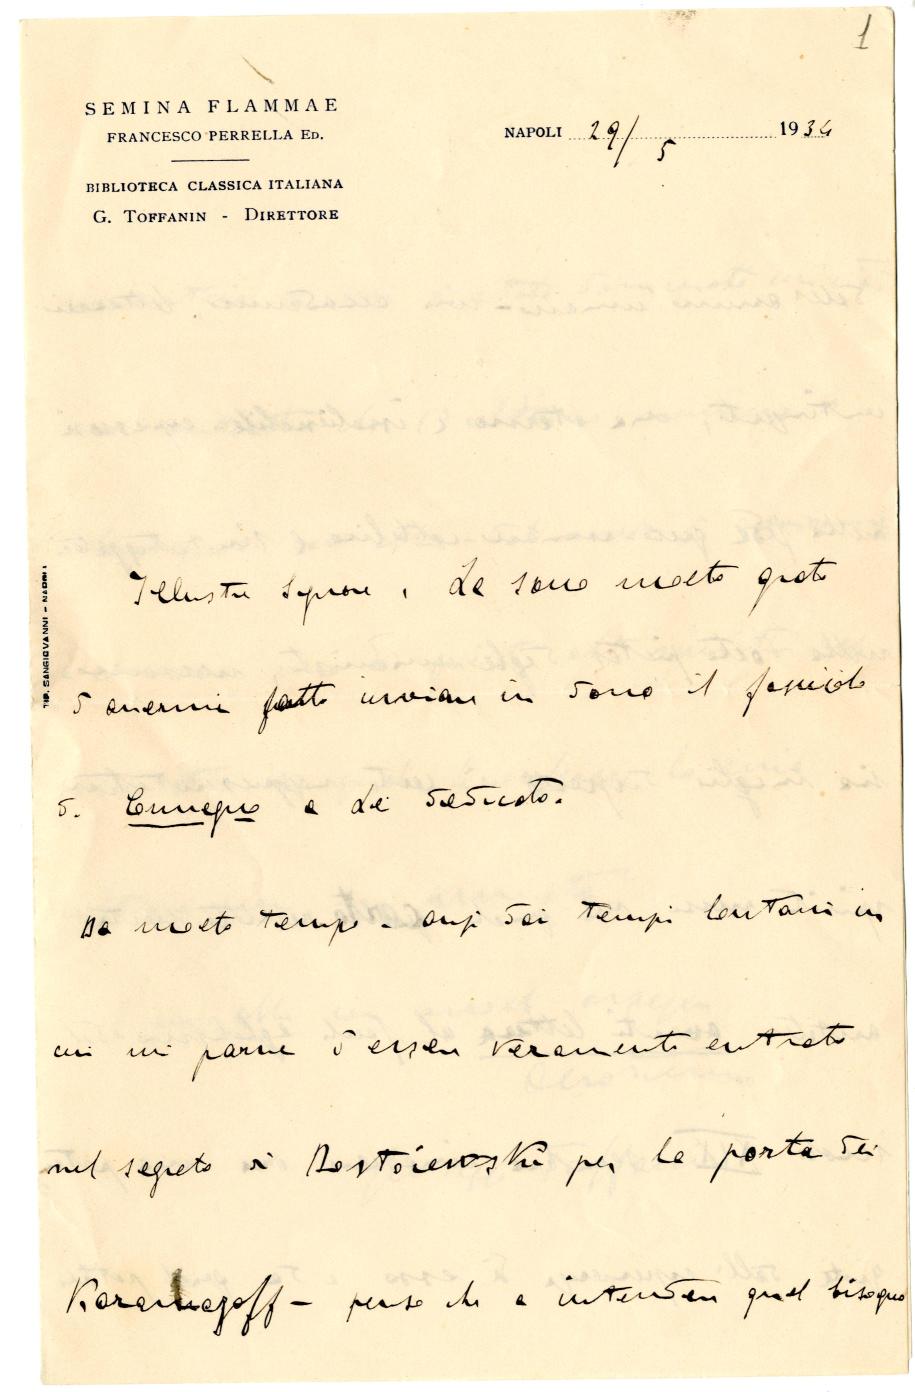 1
SEMINA FLAMMAE
FRANCESCO PERRELLA ED.
BIBLIOTECA CLASSICA ITALIANA
G. TOFFANIN - DIRETTORE
NAPOLI 29/5 1934
TIP. SANGIOVANNI - NAPOLI
Illustre Signore, Le sono molto grato
d'avermi fatto inviare in dono il fascicolo
di Convegno a Lei dedicato.
Da molto tempo - anzi dai tempi lontani in
cui mi parve d'essere veramente entrato
nel segreto di Dostoiewski per la porta dei
Karamazoff - penso che a intendere quel bisogno